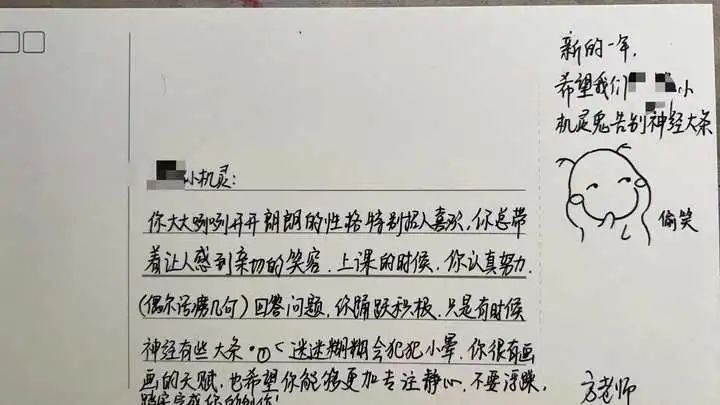 小机灵:
你大大咧咧开开朗朗的性格特别招人喜欢,你总带
着让人感到亲切的笑容.上课的时候,你认真努力.
(偶尔话痨几句)回答问题,你踊跃积极.只是有时候
神经有些大条·迷迷糊糊会犯犯小晕.你很有画
画的天赋,也希望你能够更加专注静心,不要浮躁,
踏实完成你的创作!
新的一年,
希望我们小
机灵鬼告别神经大条
偷笑
方老师